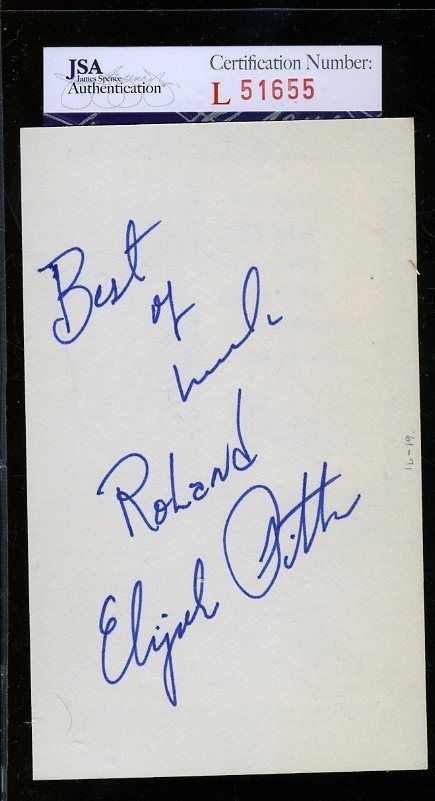 JSA
James Spence
Authentication
Certification Number:
L 51655
Best
of
luck
Roland
Elijah Pitts
16-19